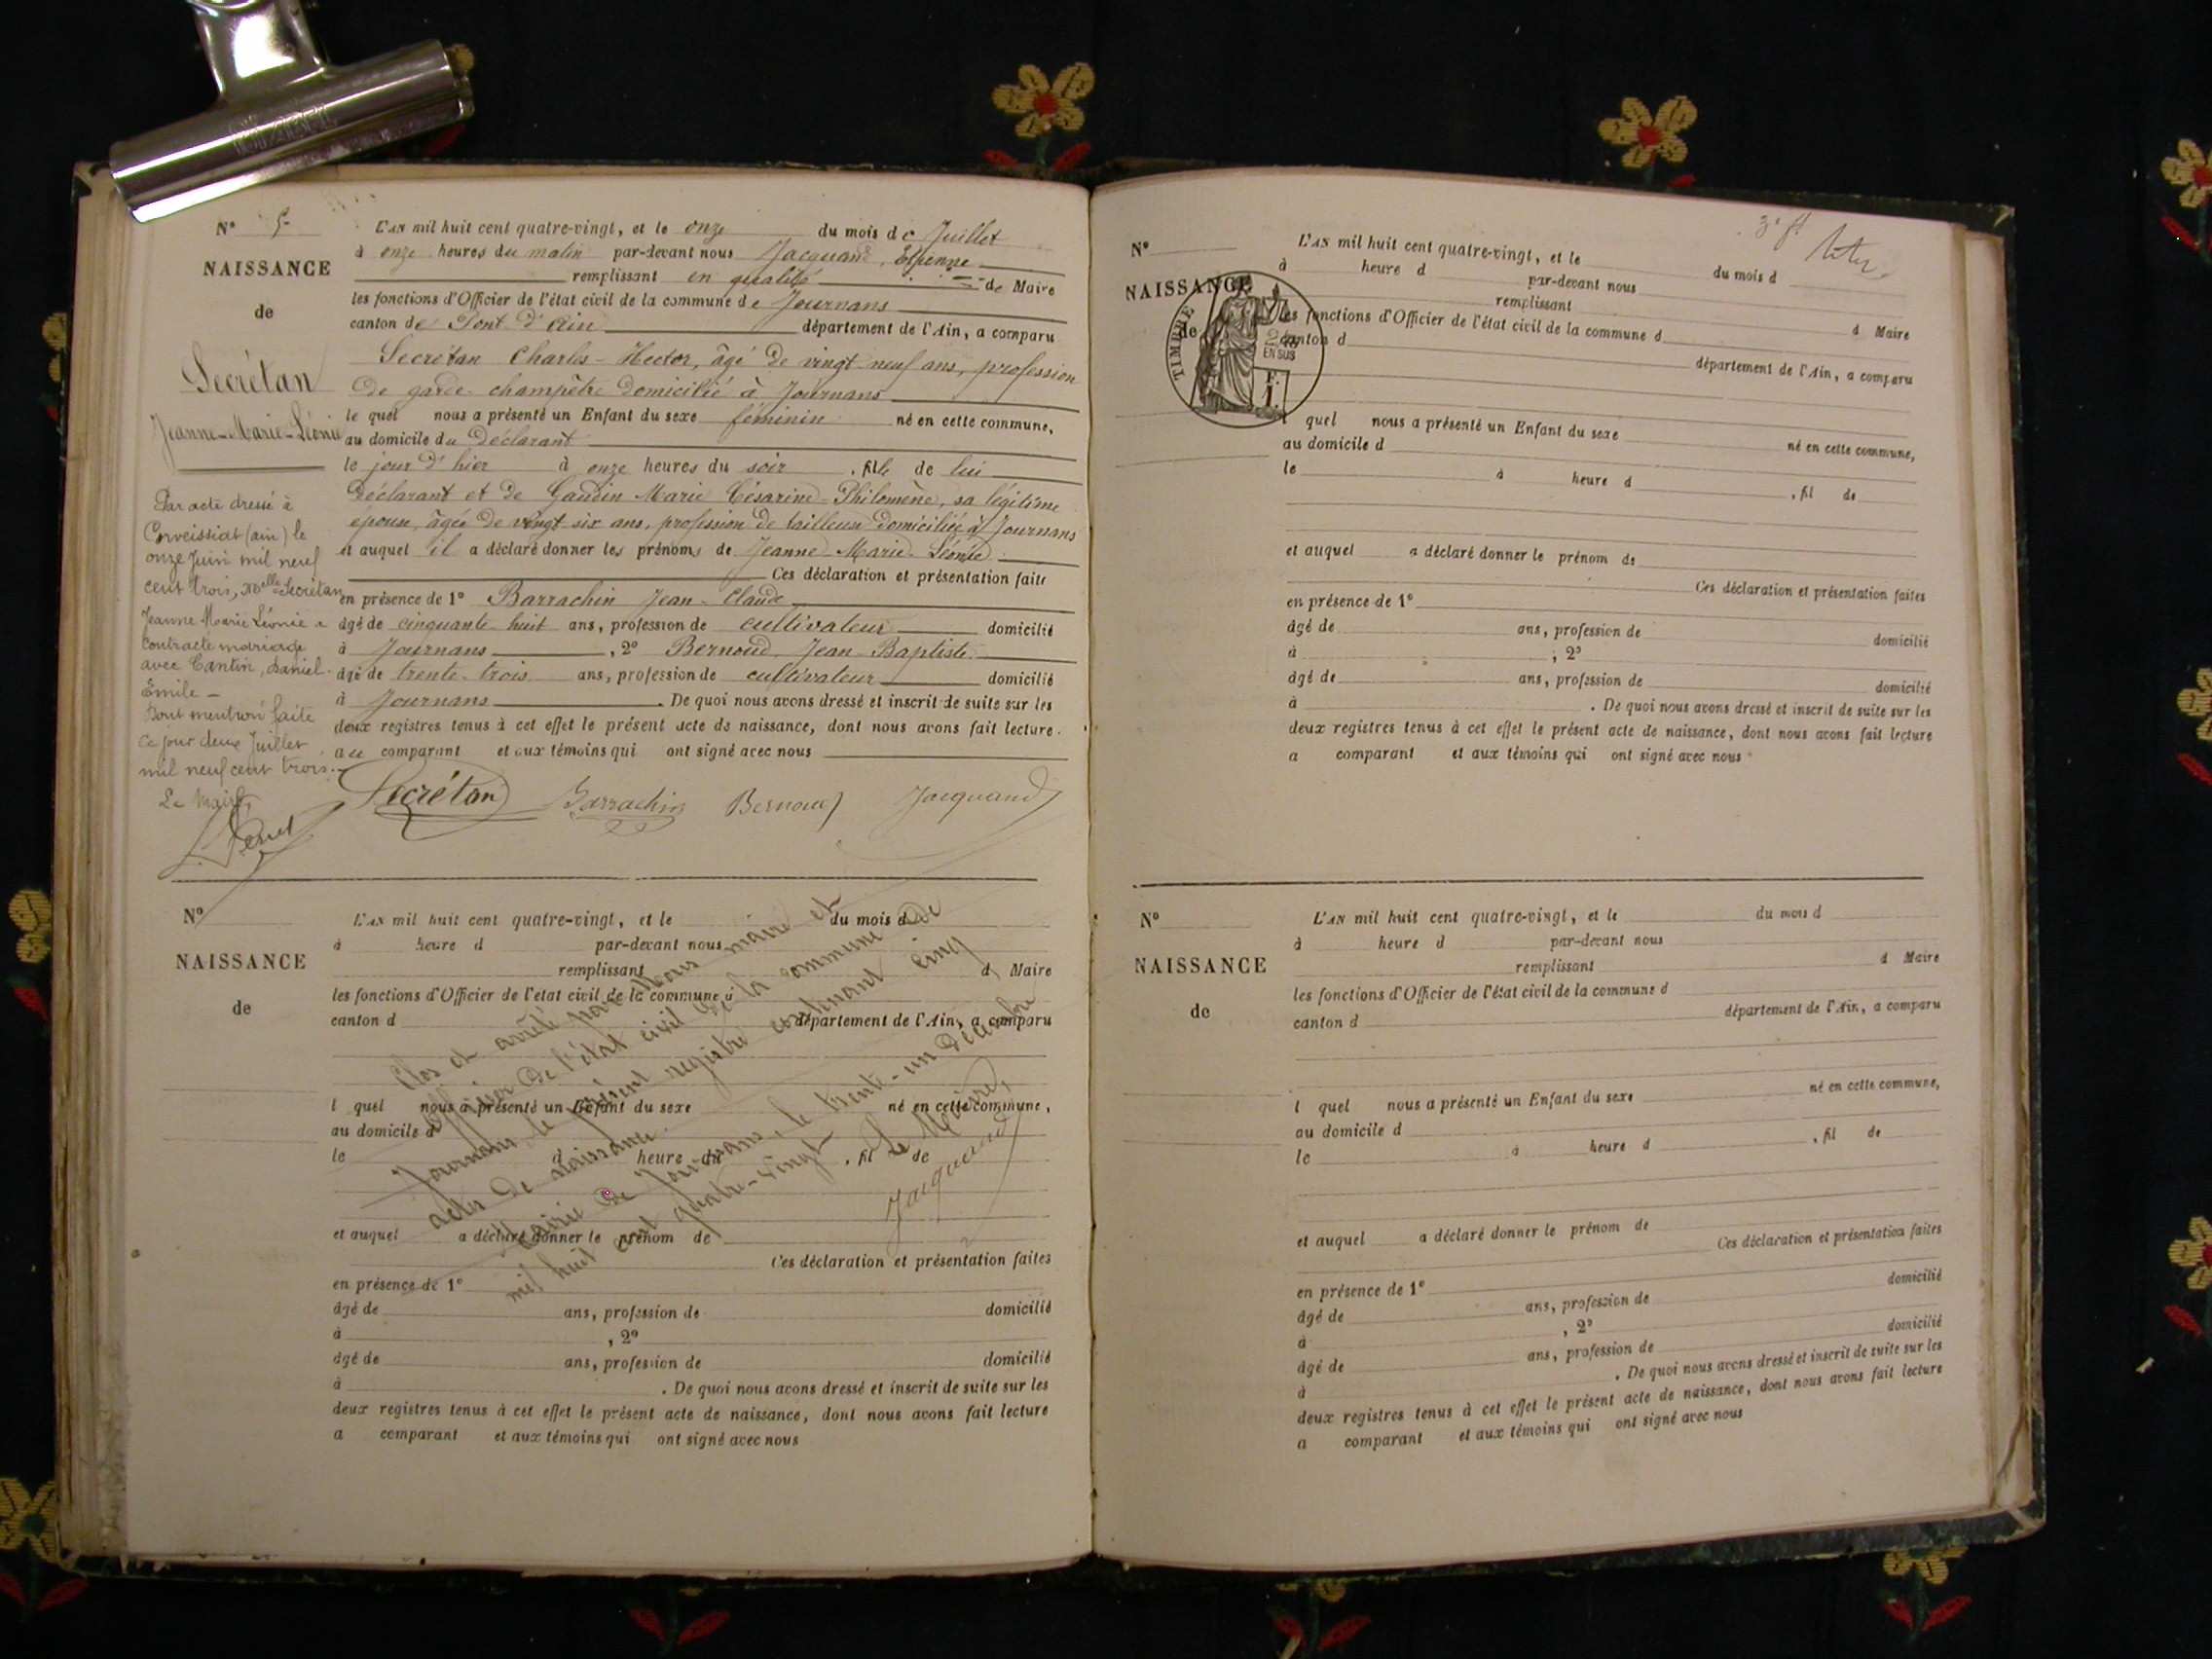 N° 5
NAISSANCE
de
Secrétan
Jeanne-Marie-Léonie
Par acte dressé à
Corveissiat (ain) le
onze Juin mil neuf
cent trois, Melle Secrétan
Jeanne Marie Léonie a
contracté mariage
avec Cantin, Daniel-
Emile -
Dont mention faite
ce jour deux Juillet
mil neuf cent trois.-
Le Maire,
L'AN mil huit cent quatre-vingt, et le onze du mois de Juillet
à onze heures du matin par-devant nous Jacquand, Etienne
remplissant en qualité de Maire
les fonctions d'Officier de l'état civil de la commune de Journans
canton de Pont d'Ain département de l'Ain, a comparu
Secrétan Charles-Hector, âgé de vingt-neuf ans, profession
de garde-champêtre domicilié à Journans
le quel nous a présenté un Enfant du sexe féminin né en cette commune,
au domicile du déclarant
le jour d'hier à onze heures du soir, fille de lui
déclarant et de Gaudin Marie Césarine-Philomène, sa légitime
épouse, âgée de vingt-six ans, profession de tailleuse domiciliée à Journans
et auquel il a déclaré donner les prénoms de Jeanne-Marie-Léonie
Ces déclaration et présentation faites
en présence de 1° Barrachin Jean-Claude
âgé de cinquante-huit ans, profession de cultivateur domicilié
à Journans, 2° Bernoud Jean-Baptiste
âgé de trente-trois ans, profession de cultivateur domicilié
à Journans. De quoi nous avons dressé et inscrit de suite sur les
deux registres tenus à cet effet le présent acte de naissance, dont nous avons fait lecture
au comparant et aux témoins qui ont signé avec nous
Secrétan Barrachin Bernoud Jacquand
N°
NAISSANCE
de
L'AN mil huit cent quatre-vingt, et le du mois d
à heure d par-devant nous
remplissant d Maire
les fonctions d'Officier de l'état civil de la commune d
canton d département de l'Ain, a comparu
l quel nous a présenté un Enfant du sexe né en cette commune,
au domicile d
le à heure du , fil de
et auquel a déclaré donner le prénom de
Ces déclaration et présentation faites
en présence de 1°
âgé de ans, profession de domicilié
à , 2°
âgé de ans, profession de domicilié
à . De quoi nous avons dressé et inscrit de suite sur les
deux registres tenus à cet effet le présent acte de naissance, dont nous avons fait lecture
a comparant et aux témoins qui ont signé avec nous
Clos et arrêté par Nous maire et
officier de l'état civil de la commune de
Journans le présent registre contenant cinq
actes de naissance.
Mairie de Journans, le trente-un Décembre
mil huit cent quatre-vingt
Le Maire,
Jacquand
N°
NAISSANCE
de
TIMBRE
2/10
EN SUS
F.
1.
L'AN mil huit cent quatre-vingt, et le du mois d
à heure d par-devant nous
remplissant d Maire
les fonctions d'Officier de l'état civil de la commune d
canton d département de l'Ain, a comparu
l quel nous a présenté un Enfant du sexe né en cette commune,
au domicile d
le à heure d , fil de
et auquel a déclaré donner le prénom de
Ces déclaration et présentation faites
en présence de 1°
âgé de ans, profession de domicilié
à , 2°
âgé de ans, profession de domicilié
à . De quoi nous avons dressé et inscrit de suite sur les
deux registres tenus à cet effet le présent acte de naissance, dont nous avons fait lecture
a comparant et aux témoins qui ont signé avec nous
N°
NAISSANCE
de
L'AN mil huit cent quatre-vingt, et le du mois d
à heure d par-devant nous
remplissant d Maire
les fonctions d'Officier de l'état civil de la commune d
canton d département de l'Ain, a comparu
l quel nous a présenté un Enfant du sexe né en cette commune,
au domicile d
le à heure d , fil de
et auquel a déclaré donner le prénom de
Ces déclaration et présentation faites
en présence de 1°
âgé de ans, profession de domicilié
à , 2°
âgé de ans, profession de domicilié
à . De quoi nous avons dressé et inscrit de suite sur les
deux registres tenus à cet effet le présent acte de naissance, dont nous avons fait lecture
a comparant et aux témoins qui ont signé avec nous